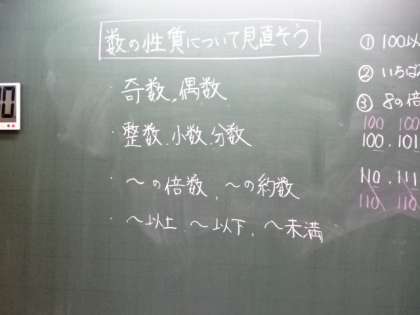 数の性質について見直そう
・奇数,偶数
・整数、小数、分数
・〜の倍数、〜の約数
・〜以上、〜以下、〜未満
① 100以
② いちば
③ 8の倍
100 100
100.101
110.111
110 110